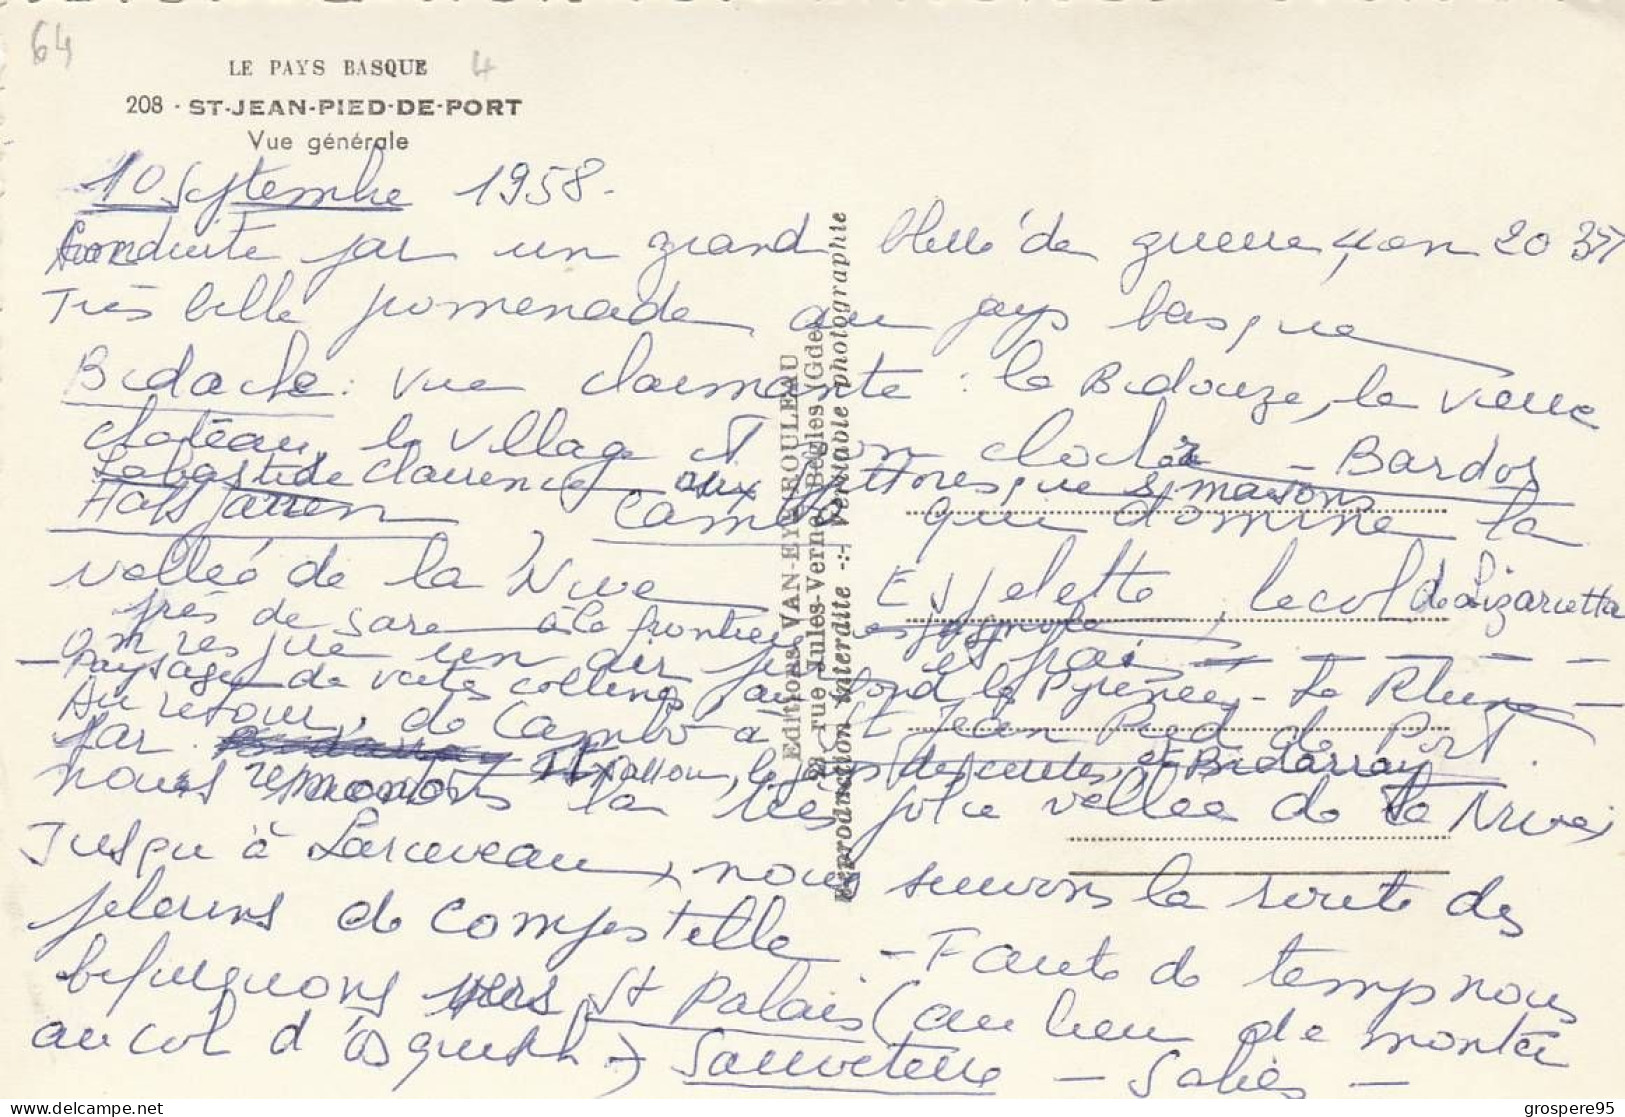 64
LE PAYS BASQUE 4
208 - ST-JEAN-PIED-DE-PORT
Vue générale
10 Septembre 1958.
Conduite par un grand blessé de guerre, 4 en 203
Très belle promenade au pays basque
Bidache : vue charmante : la Bidouze, le vieux
château, le village et son clocher - Bardos
Labastide Clairence aux pittoresques maisons
Hasparren Cambo qui domine la
vallée de la Nive Espelette, le col de Lizarietta
près de Sare à la frontière espagnole
on respire un air pur et frais
- Paysage de vertes collines au fond les Pyrénées - La Rhune -
Au retour, de Cambo à St Jean Pied de Port.
par Itxassou, le pas de Roland, et Bidarray
nous remontons la très jolie vallée de la Nive,
Jusqu'à Larceveau, nous suivons la route des
pelerins de Compostelle - Faute de temps nous
bifurquons vers St Palais (au lieu de monter
au col d'Osquich) Sauveterre - Salies -
Editions VAN-EYK-ROULEAU
rue Jules-Verne, Bègles (Gde)
Reproduction interdite -:- Véritable photographie
grospere95